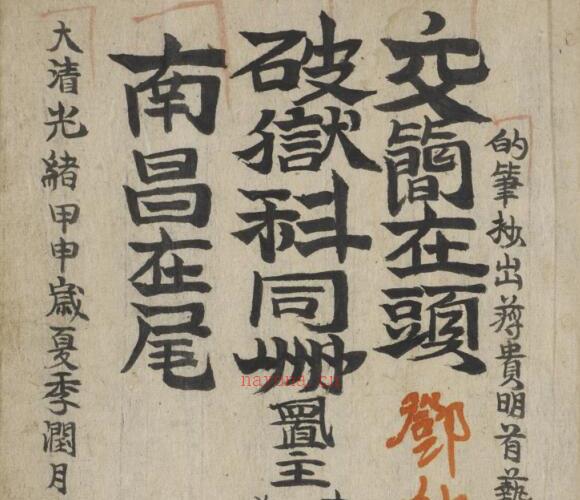 的筆抄出貴明首藝
交簡在頭
鄧
破獄科同州置主
南昌在尾
大清光緒甲申歲夏季潤月
nayona.cn